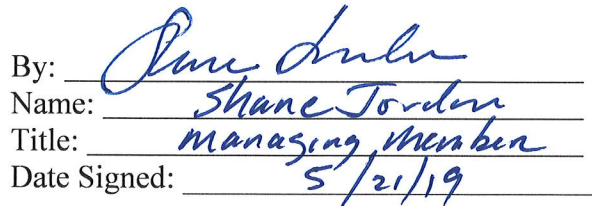 By:
Name: Shane Jordan
Title: Managing Member
Date Signed: 5/21/19